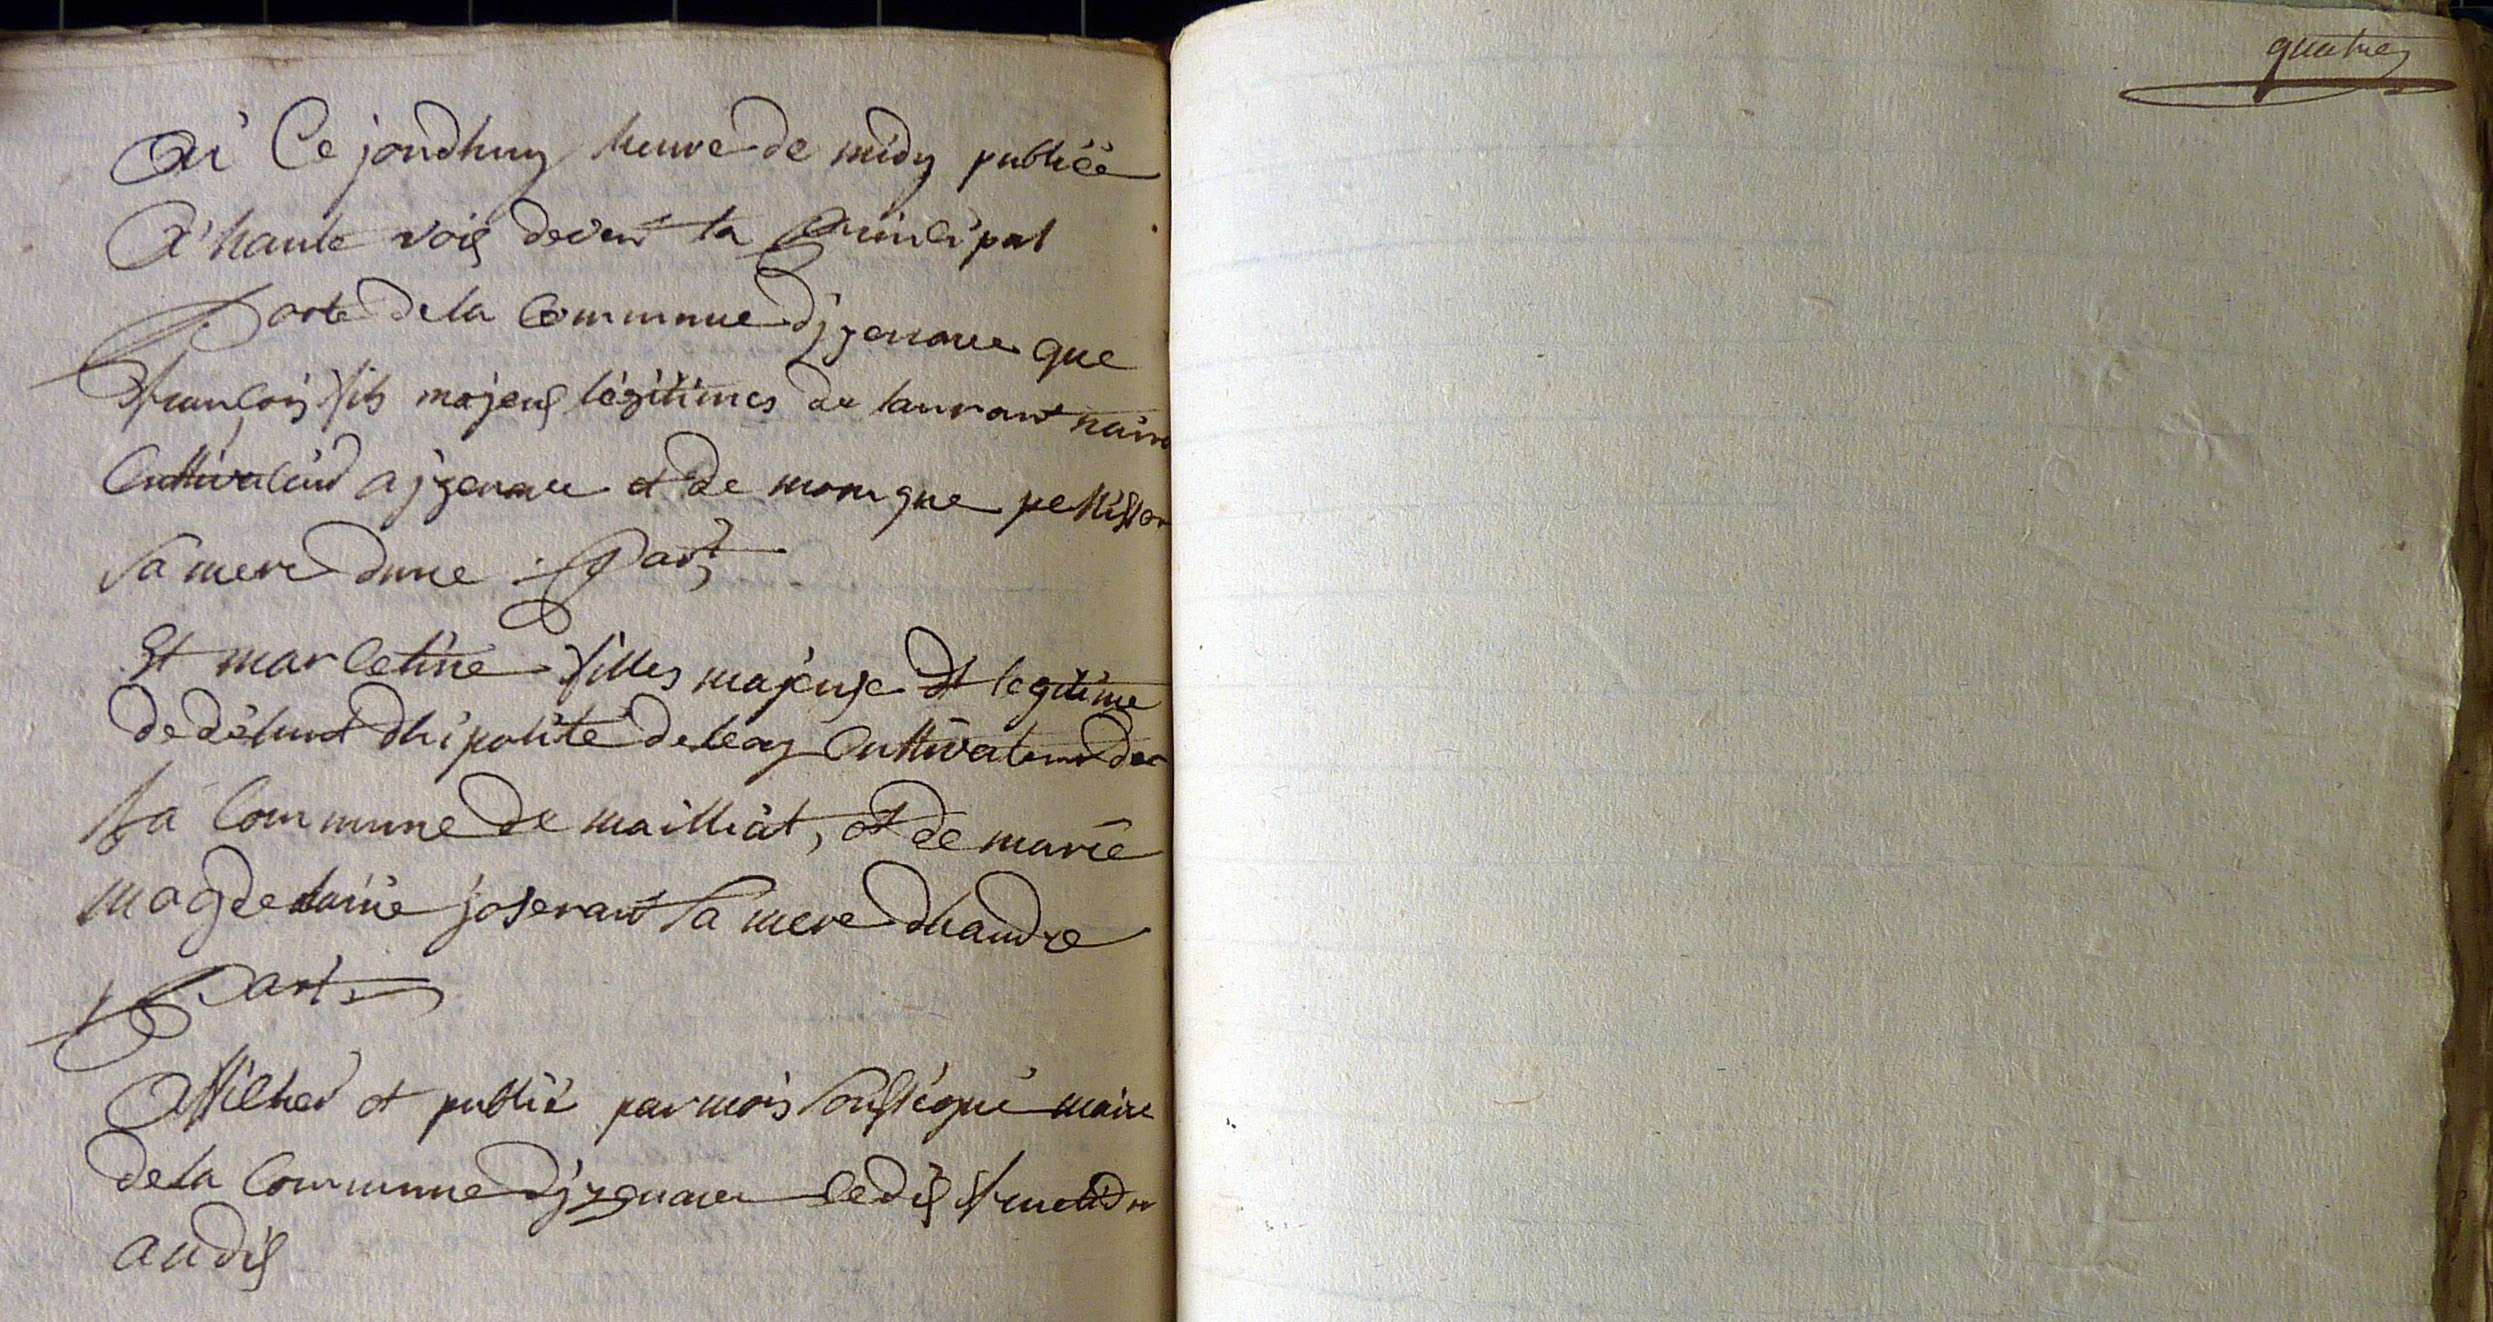 Oui Ce jourdhuy heure de midy publiée
A haute voix devent la principal
Porte de la Commune dizernore que
françois fils majeus légitimes de laurant
Cultivateur a izernore et de monique
Sa mere dune Part
Et marceline filles majeuse et legitime
de défunt dhipolité deleaz Cultivateur de
La Commune de mailliat, et de marie
magdelaine joserant sa mere dhaudre
Part
Affilher et publié par mois soussiégné maire
de la Commune dizernore le dix fructidor
an dix
quatre